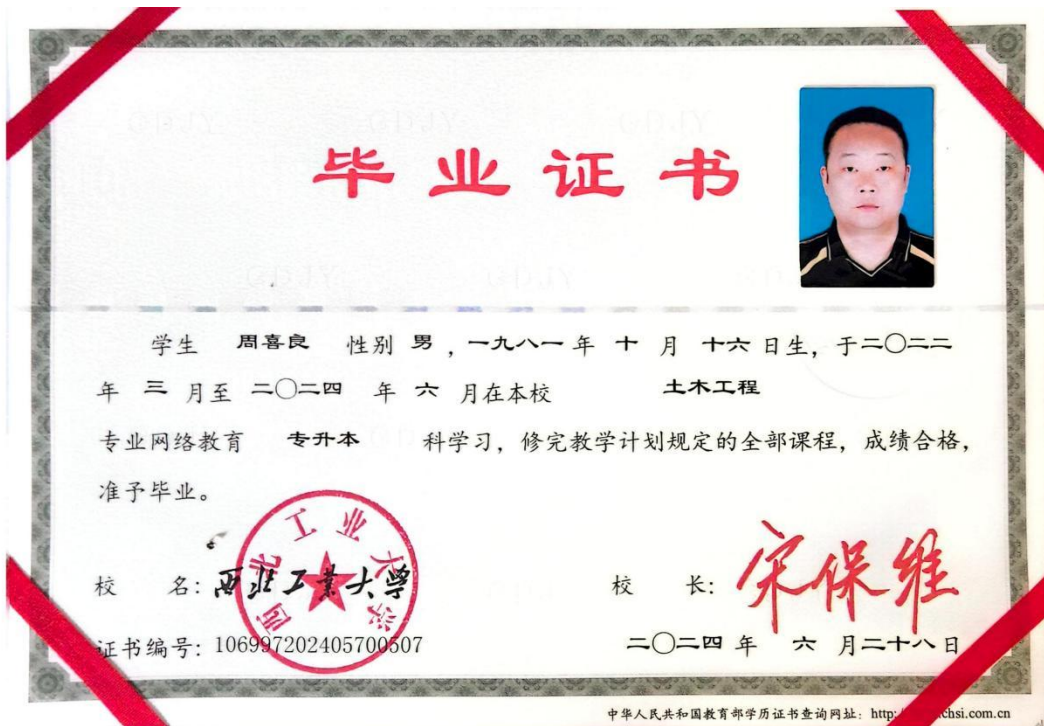 毕业证书
学生 周喜良 性别 男，一九八一 年 十 月 十六 日生，于二〇二二
年 三 月至 二〇二四 年 六 月在本校 土木工程
专业网络教育 专升本 科学习，修完教学计划规定的全部课程，成绩合格，
准予毕业。
西北工业大学
校 名：西北工业大学
校 长：宋保维
证书编号：106997202405700507
二〇二四 年 六 月二十八日
中华人民共和国教育部学历证书查询网址：http:// chsi.com.cn